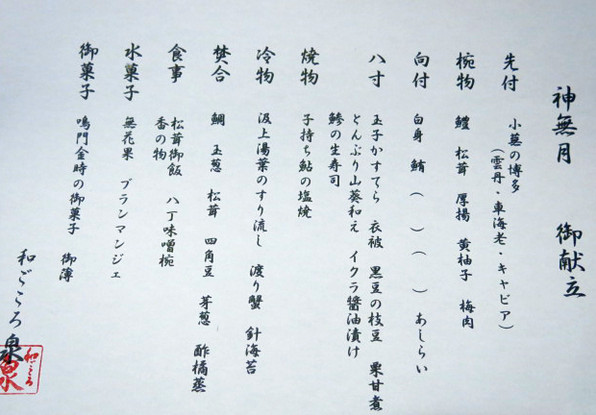 神無月　御献立
先付　小蕪の博多
（雲丹・車海老・キャビア）
椀物　鱧　松茸　厚揚　黄柚子　梅肉
向付　白身　鮪（　）（　）あしらい
八寸　玉子かすてら　衣被　黒豆の枝豆　栗甘煮
とんぶり山葵和え　イクラ醬油漬け
鯵の生寿司
焼物　子持ち鮎の塩焼
冷物　汲上湯葉のすり流し　渡り蟹　針海苔
焚合　鯛　玉葱　松茸　四角豆　芽葱　酢橘蒸
食事　松茸御飯　八丁味噌椀
香の物
水菓子　無花果　ブランマンジェ
御菓子　鳴門金時の御菓子　御薄
和ごころ　泉
和ごころ
泉